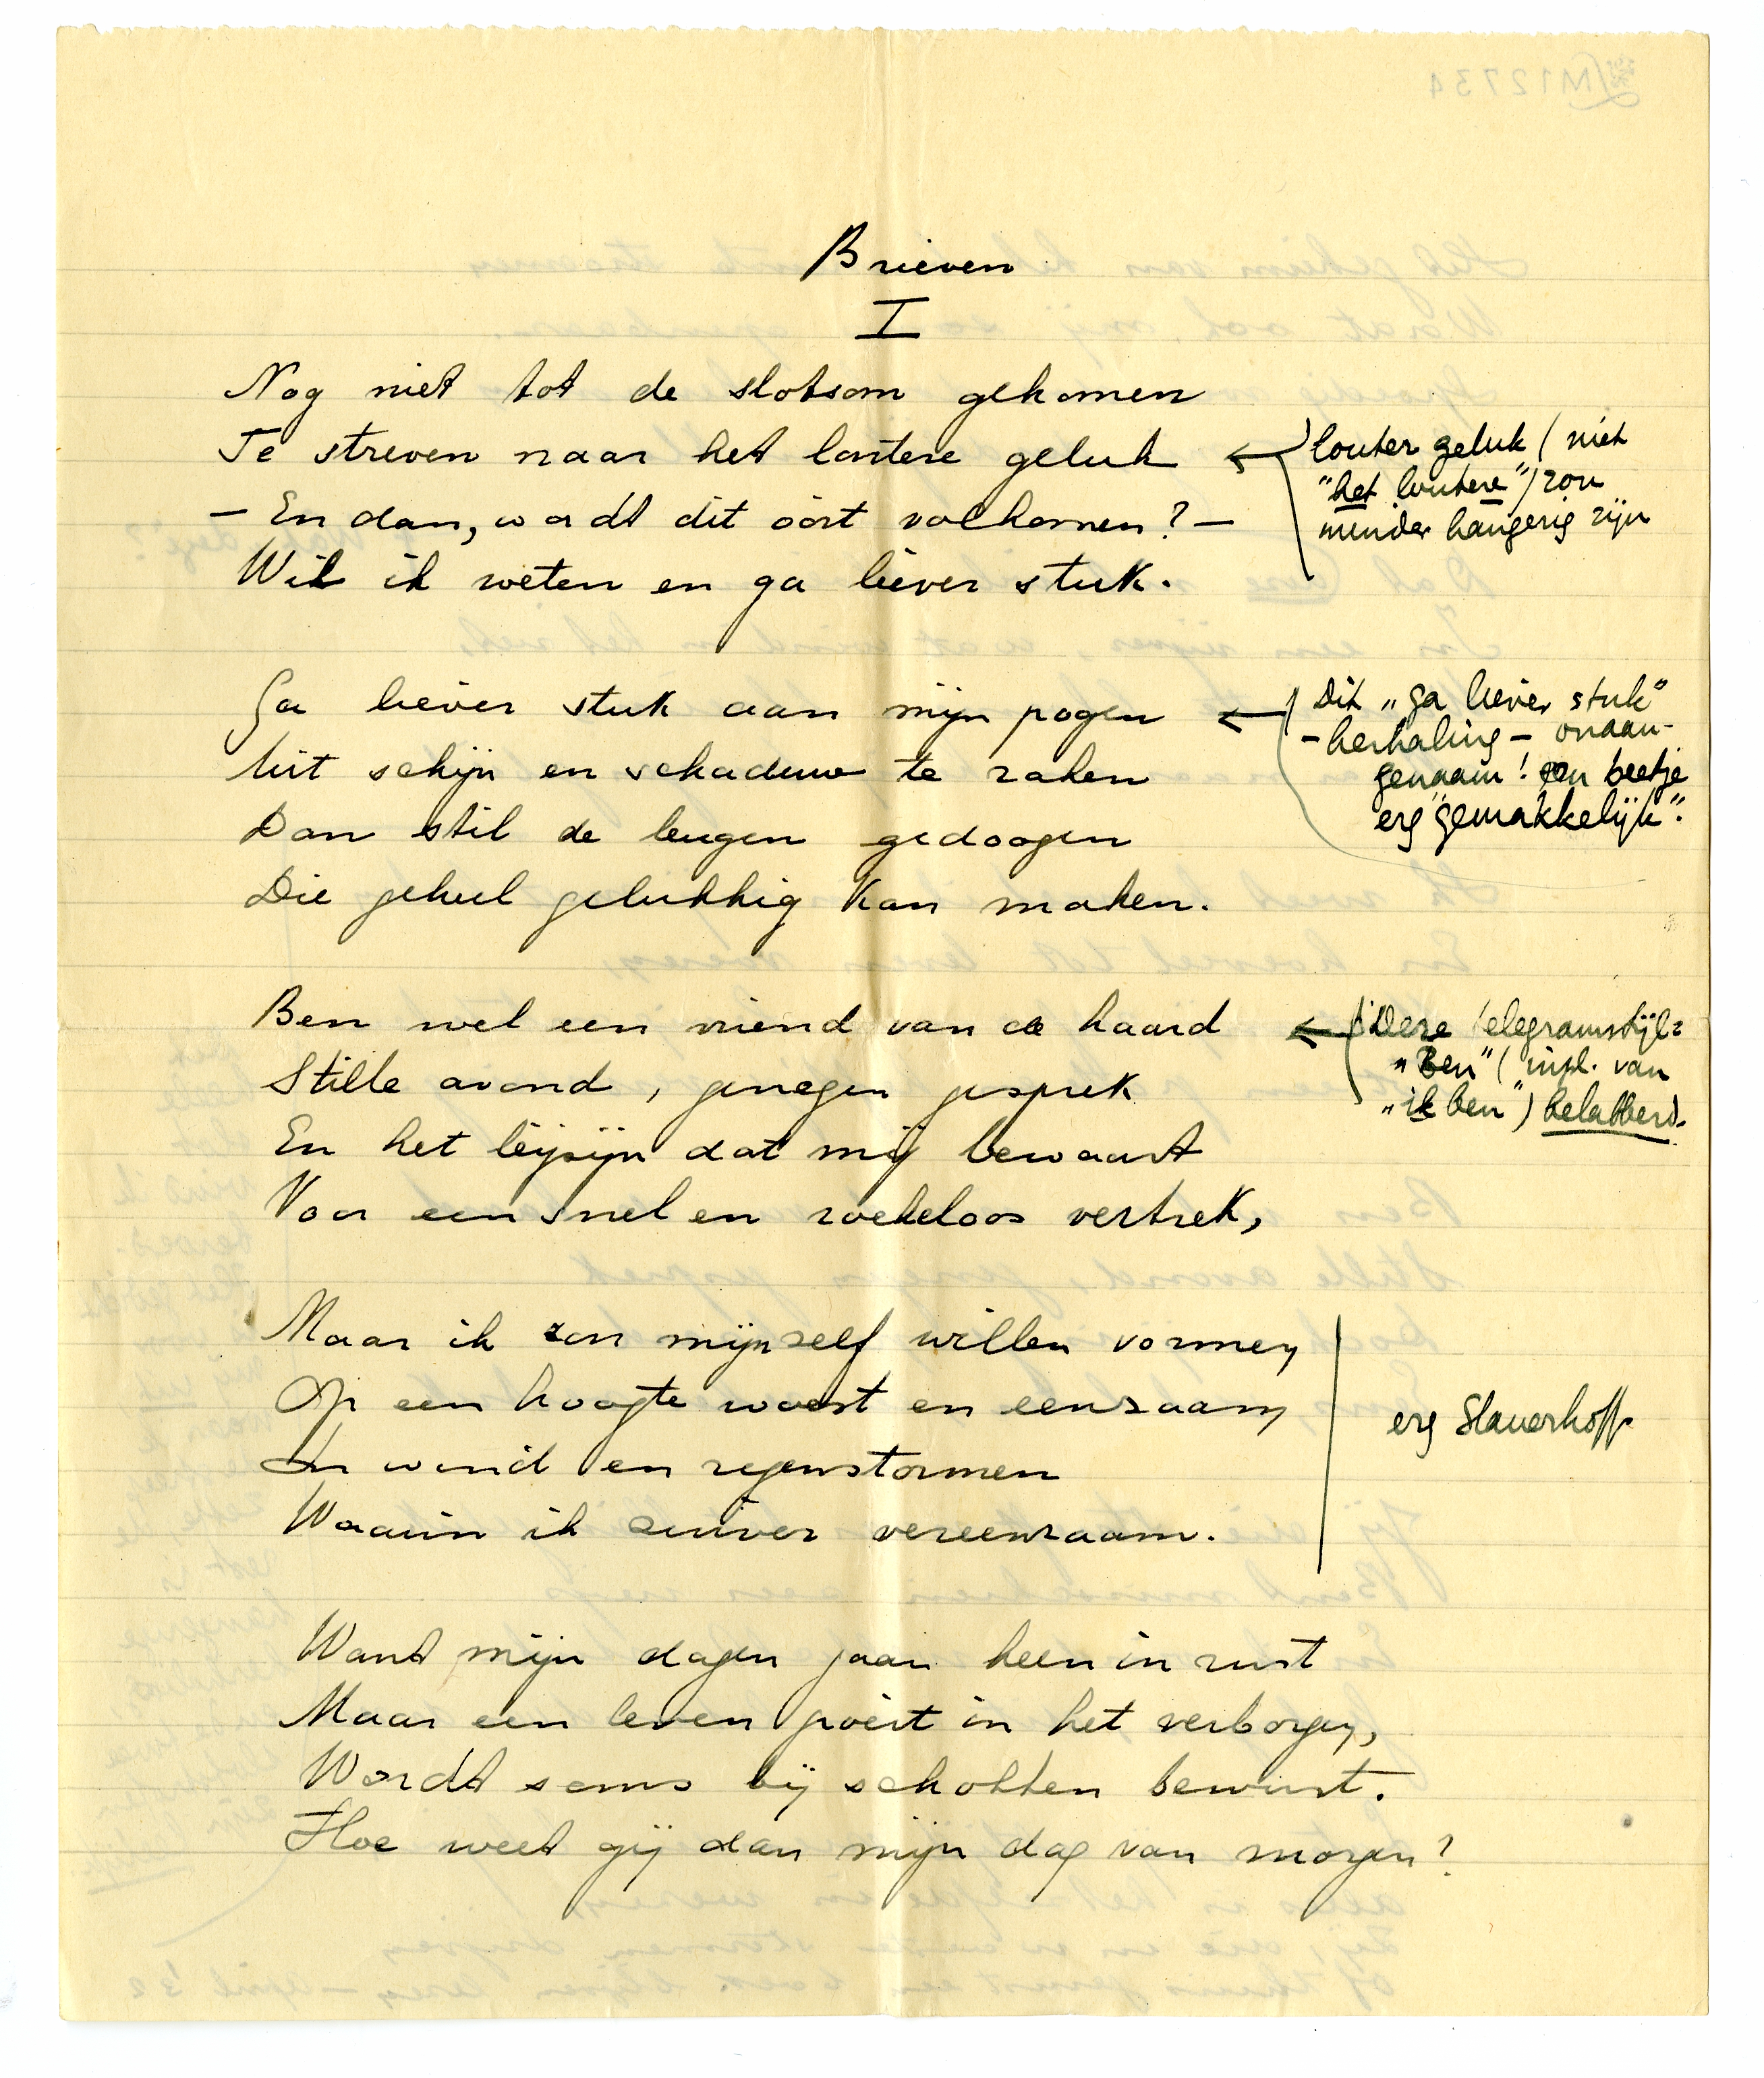 Brieven
I
Nog niet tot de slotsom gekomen
Te streven naar het loutere geluk
— En dan, wordt dit óóit volkomen? —
Wil ik weten en ga liever stuk.
louter geluk (niet
"het loutere") zou
minder hangerig zijn
Ga liever stuk aan mijn pogen
Uit schijn en schaduw te raken
Dan stil de leugen gedoogen
Die geheel gelukkig kan maken.
Dit "ga liever stuk"
- herhaling - onaan-
genaam! een beetje
erg "gemakkelijk".
Ben wel een vriend van de haard
Stille avond, genegen gesprek
En het bijzijn dat mij bewaart
Voor een snel en roekeloos vertrek,
Deze telegramstijl:
"Ben" (inpl. van
"ik ben") belabberd.
Maar ik zou mijnzelf willen vormen
Op een hoogte woest en eenzaam
In wind en regenstormen
Waarin ik zuiver vereenzaam.
erg Slauerhoff.
Want mijn dagen gaan heen in rust
Maar een leven groeit in het verborgen,
Wordt soms bij schokken bewust.
Hoe weet gij dan mijn dag van morgen?